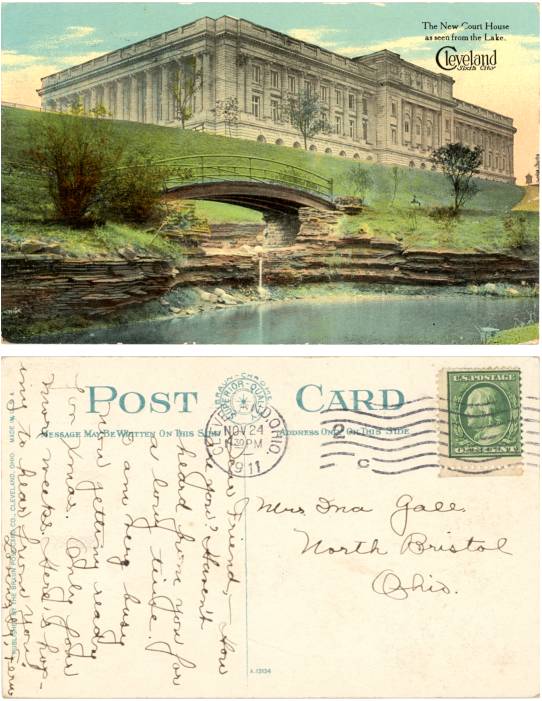 The New Court House
as seen from the Lake.
Cleveland
Sixth City
POST CARD
MESSAGE MAY BE WRITTEN ON THIS SIDE
ADDRESS ONLY ON THIS SIDE
CLEVELAND, OHIO
NOV 24
430 PM
1911
2
C
U.S. POSTAGE
ONE CENT
Friend - How
are you? Haven't
heard from you for
a long time.
I am very busy
now getting ready
for Xmas. Only four
more weeks. Here's hop-
ing to hear from you.
Miss Ina Gall.
North Bristol
Ohio.
PUBLISHED BY THE BRAUN POST CARD CO., CLEVELAND, OHIO. MADE IN U.S.A.
A-13134